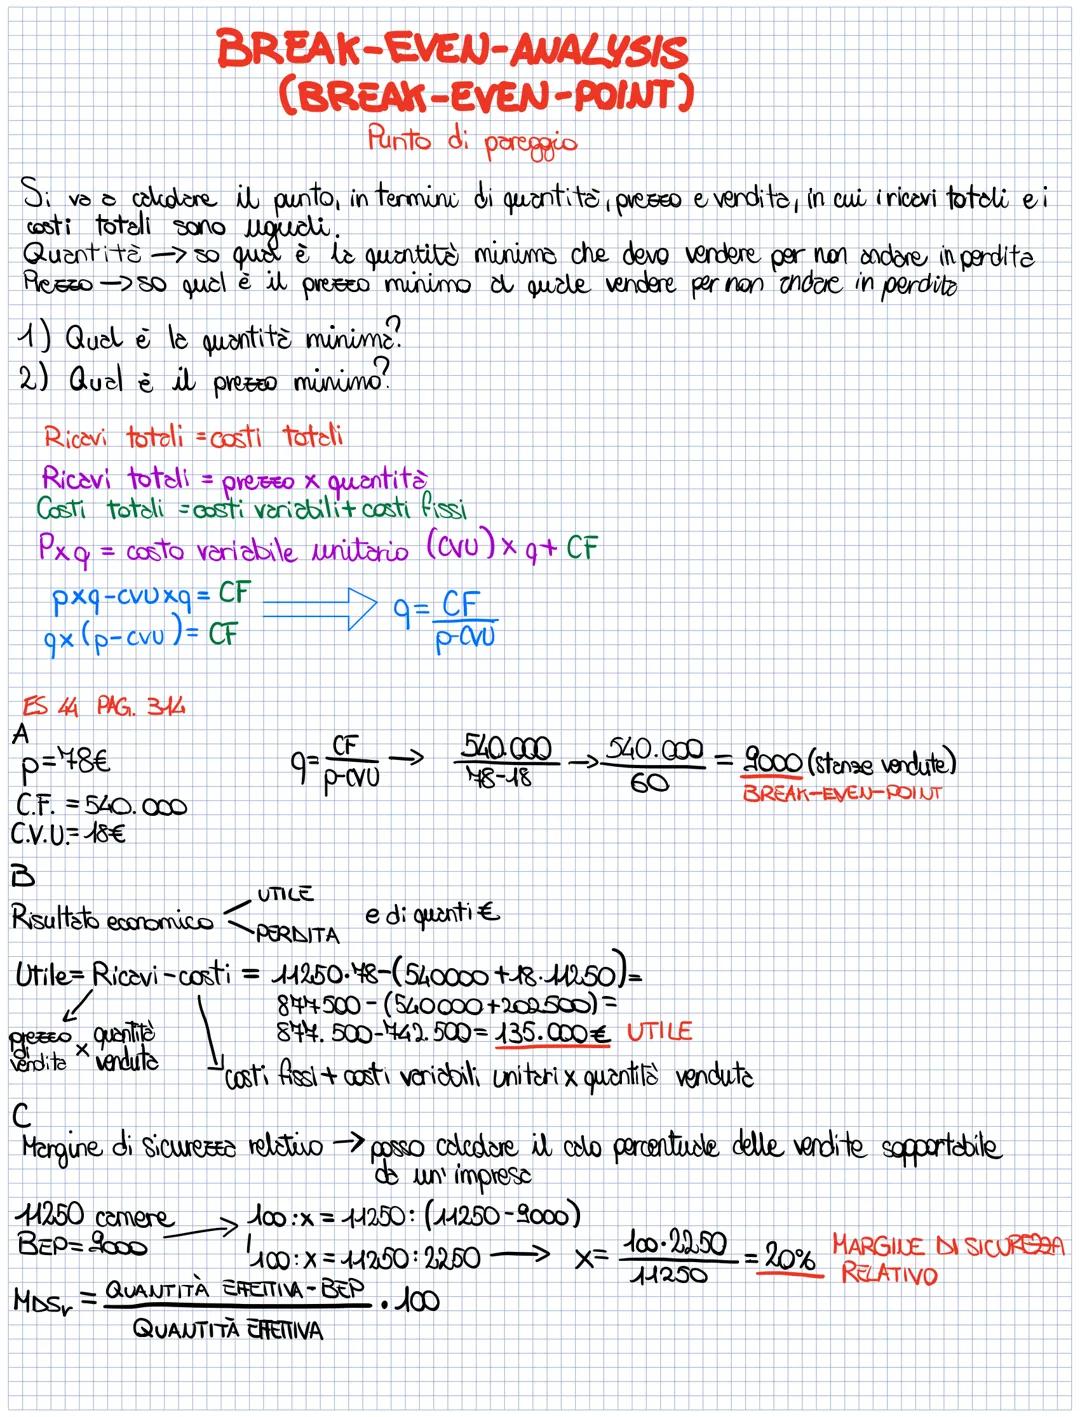 BREAK-EVEN-ANALYSIS
(BREAK-EVEN-POINT)
Punto di pareggio
Si va a calcolare il punto, in termini di quantità, prezzo e vendita, in cui i ricavi totali e i
costi totali sono uguali.
Quantità → so qual è la quantità minima che devo vendere per non andare in perdita
Prezzo → so qual è il prezzo minimo al quale vendere per non andare in perdita
1) Qual è la quantità minima?
2) Qual è il prezzo minimo?
Ricavi totali = costi totali
Ricavi totali = prezzo x quantità
Costi totali = costi variabili + costi fissi
Pxq = costo variabile unitario (CVU) x q + CF
pxq-CVUxq = CF
qx(p-CVU) = CF
q = CF / p-CVU
ES 44 PAG. 314
A
p = 78€
C.F. = 540.000
C.V.U. = 18€
q = CF / p-CVU → 540.000 / 78-18 → 540.000 / 60 = 9000 (stanze vendute)
BREAK-EVEN-POINT
B
Risultato economico UTILE PERDITA e di quanti €
Utile = Ricavi - costi = 11250·78-(540000+18·11250) =
877500-(540000+202500) =
877.500-742.500 = 135.000€ UTILE
prezzo di vendita x quantità venduta
costi fissi + costi variabili unitari x quantità venduta
C
Margine di sicurezza relativo → posso calcolare il calo percentuale delle vendite sopportabile
da un'impresa
11250 camere
BEP = 9000
100:x = 11250:(11250-9000)
100:x = 11250:2250 → x = 100·2250 / 11250 = 20% MARGINE DI SICUREZZA RELATIVO
MDSr = QUANTITÀ EFFETTIVA-BEP / QUANTITÀ EFFETTIVA · 100